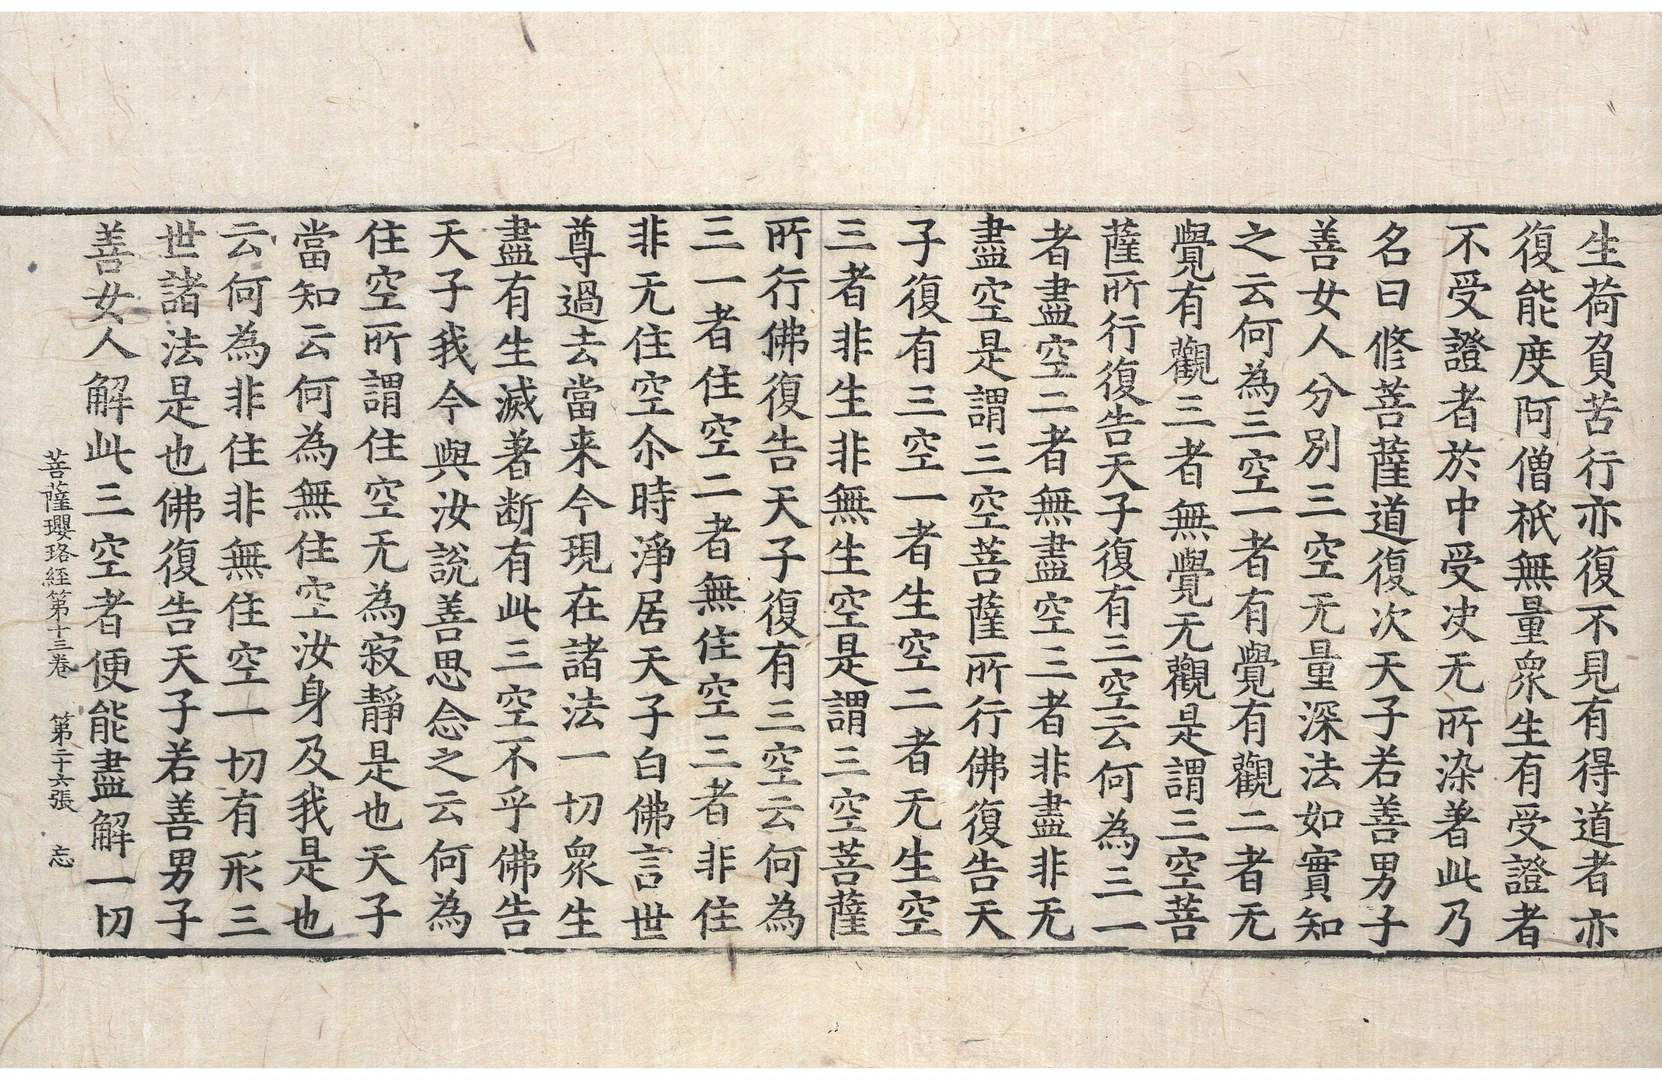 生荷負苦行亦復不見有得道者亦
復能度阿僧祇無量衆生有受證者
不受證者於中受决无所染著此乃
名曰修菩薩道復次天子若善男子
善女人分別三空无量深法如實知
之云何為三空一者有覺有觀二者无
覺有觀三者無覺无觀是謂三空菩
薩所行復告天子復有三空云何為三一
者盡空二者無盡空三者非盡非无
盡空是謂三空菩薩所行佛復告天
子復有三空一者生空二者无生空
三者非生非無生空是謂三空菩薩
所行佛復告天子復有三空云何為
三一者住空二者無住空三者非住
非无住空尒時淨居天子白佛言世
尊過去當来今現在諸法一切衆生
盡有生滅著断有此三空不乎佛告
天子我今與汝說善思念之云何為
住空所謂住空无為寂靜是也天子
當知云何為無住空汝身及我是也
云何為非住非無住空一切有形三
世諸法是也佛復告天子若善男子
善女人解此三空者便能盡解一切
菩薩瓔珞経第十三卷　第二十六張　忘